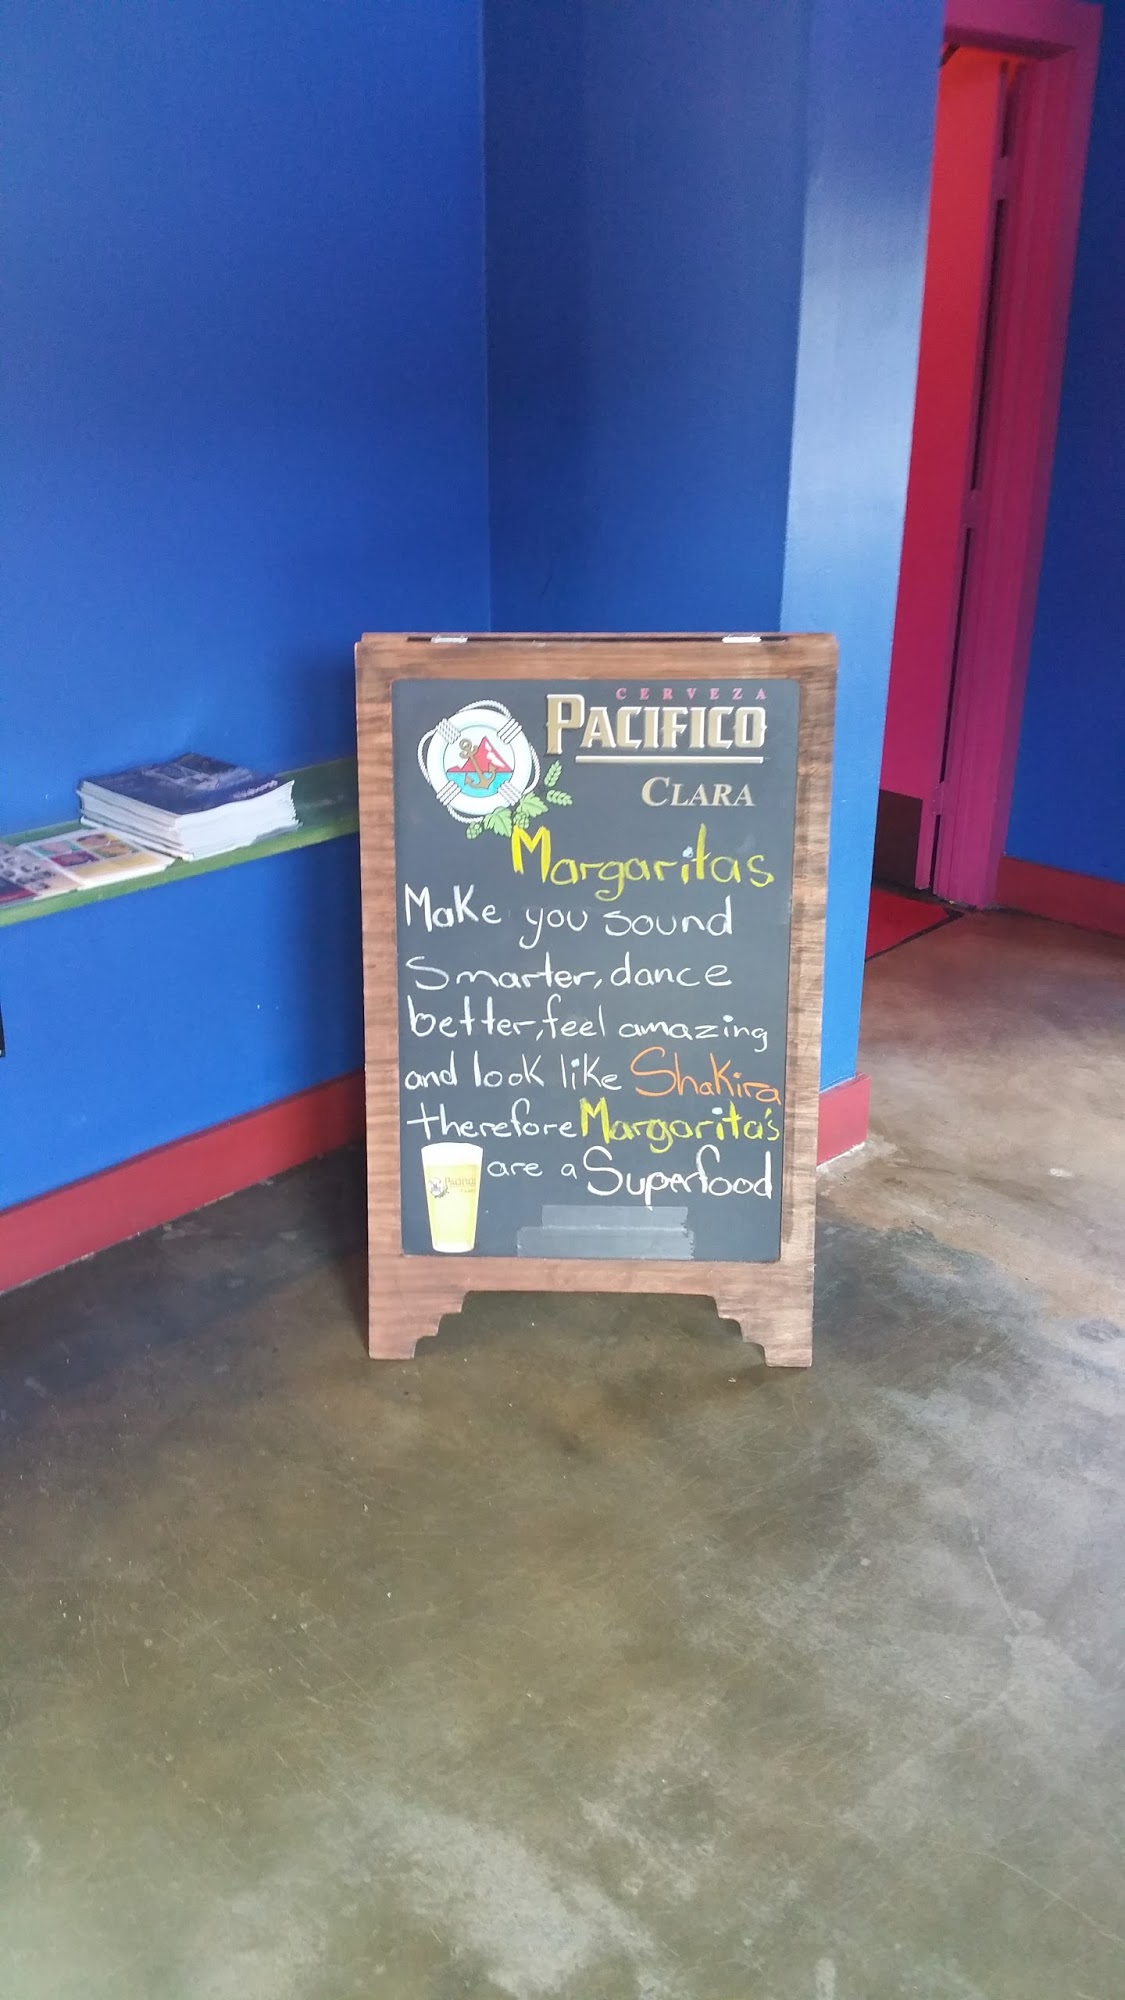 CERVEZA
PACIFICO
CLARA
Margaritas
Make you sound
Smarter, dance
better, feel amazing
and look like Shakira
therefore Margarita's
are a Superfood